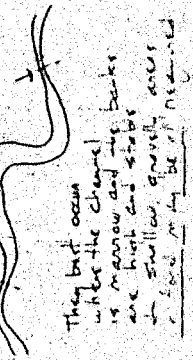 They best occur
where the channel
is narrow and the banks
are high and stable
shallow, gravelly areas
may be all required